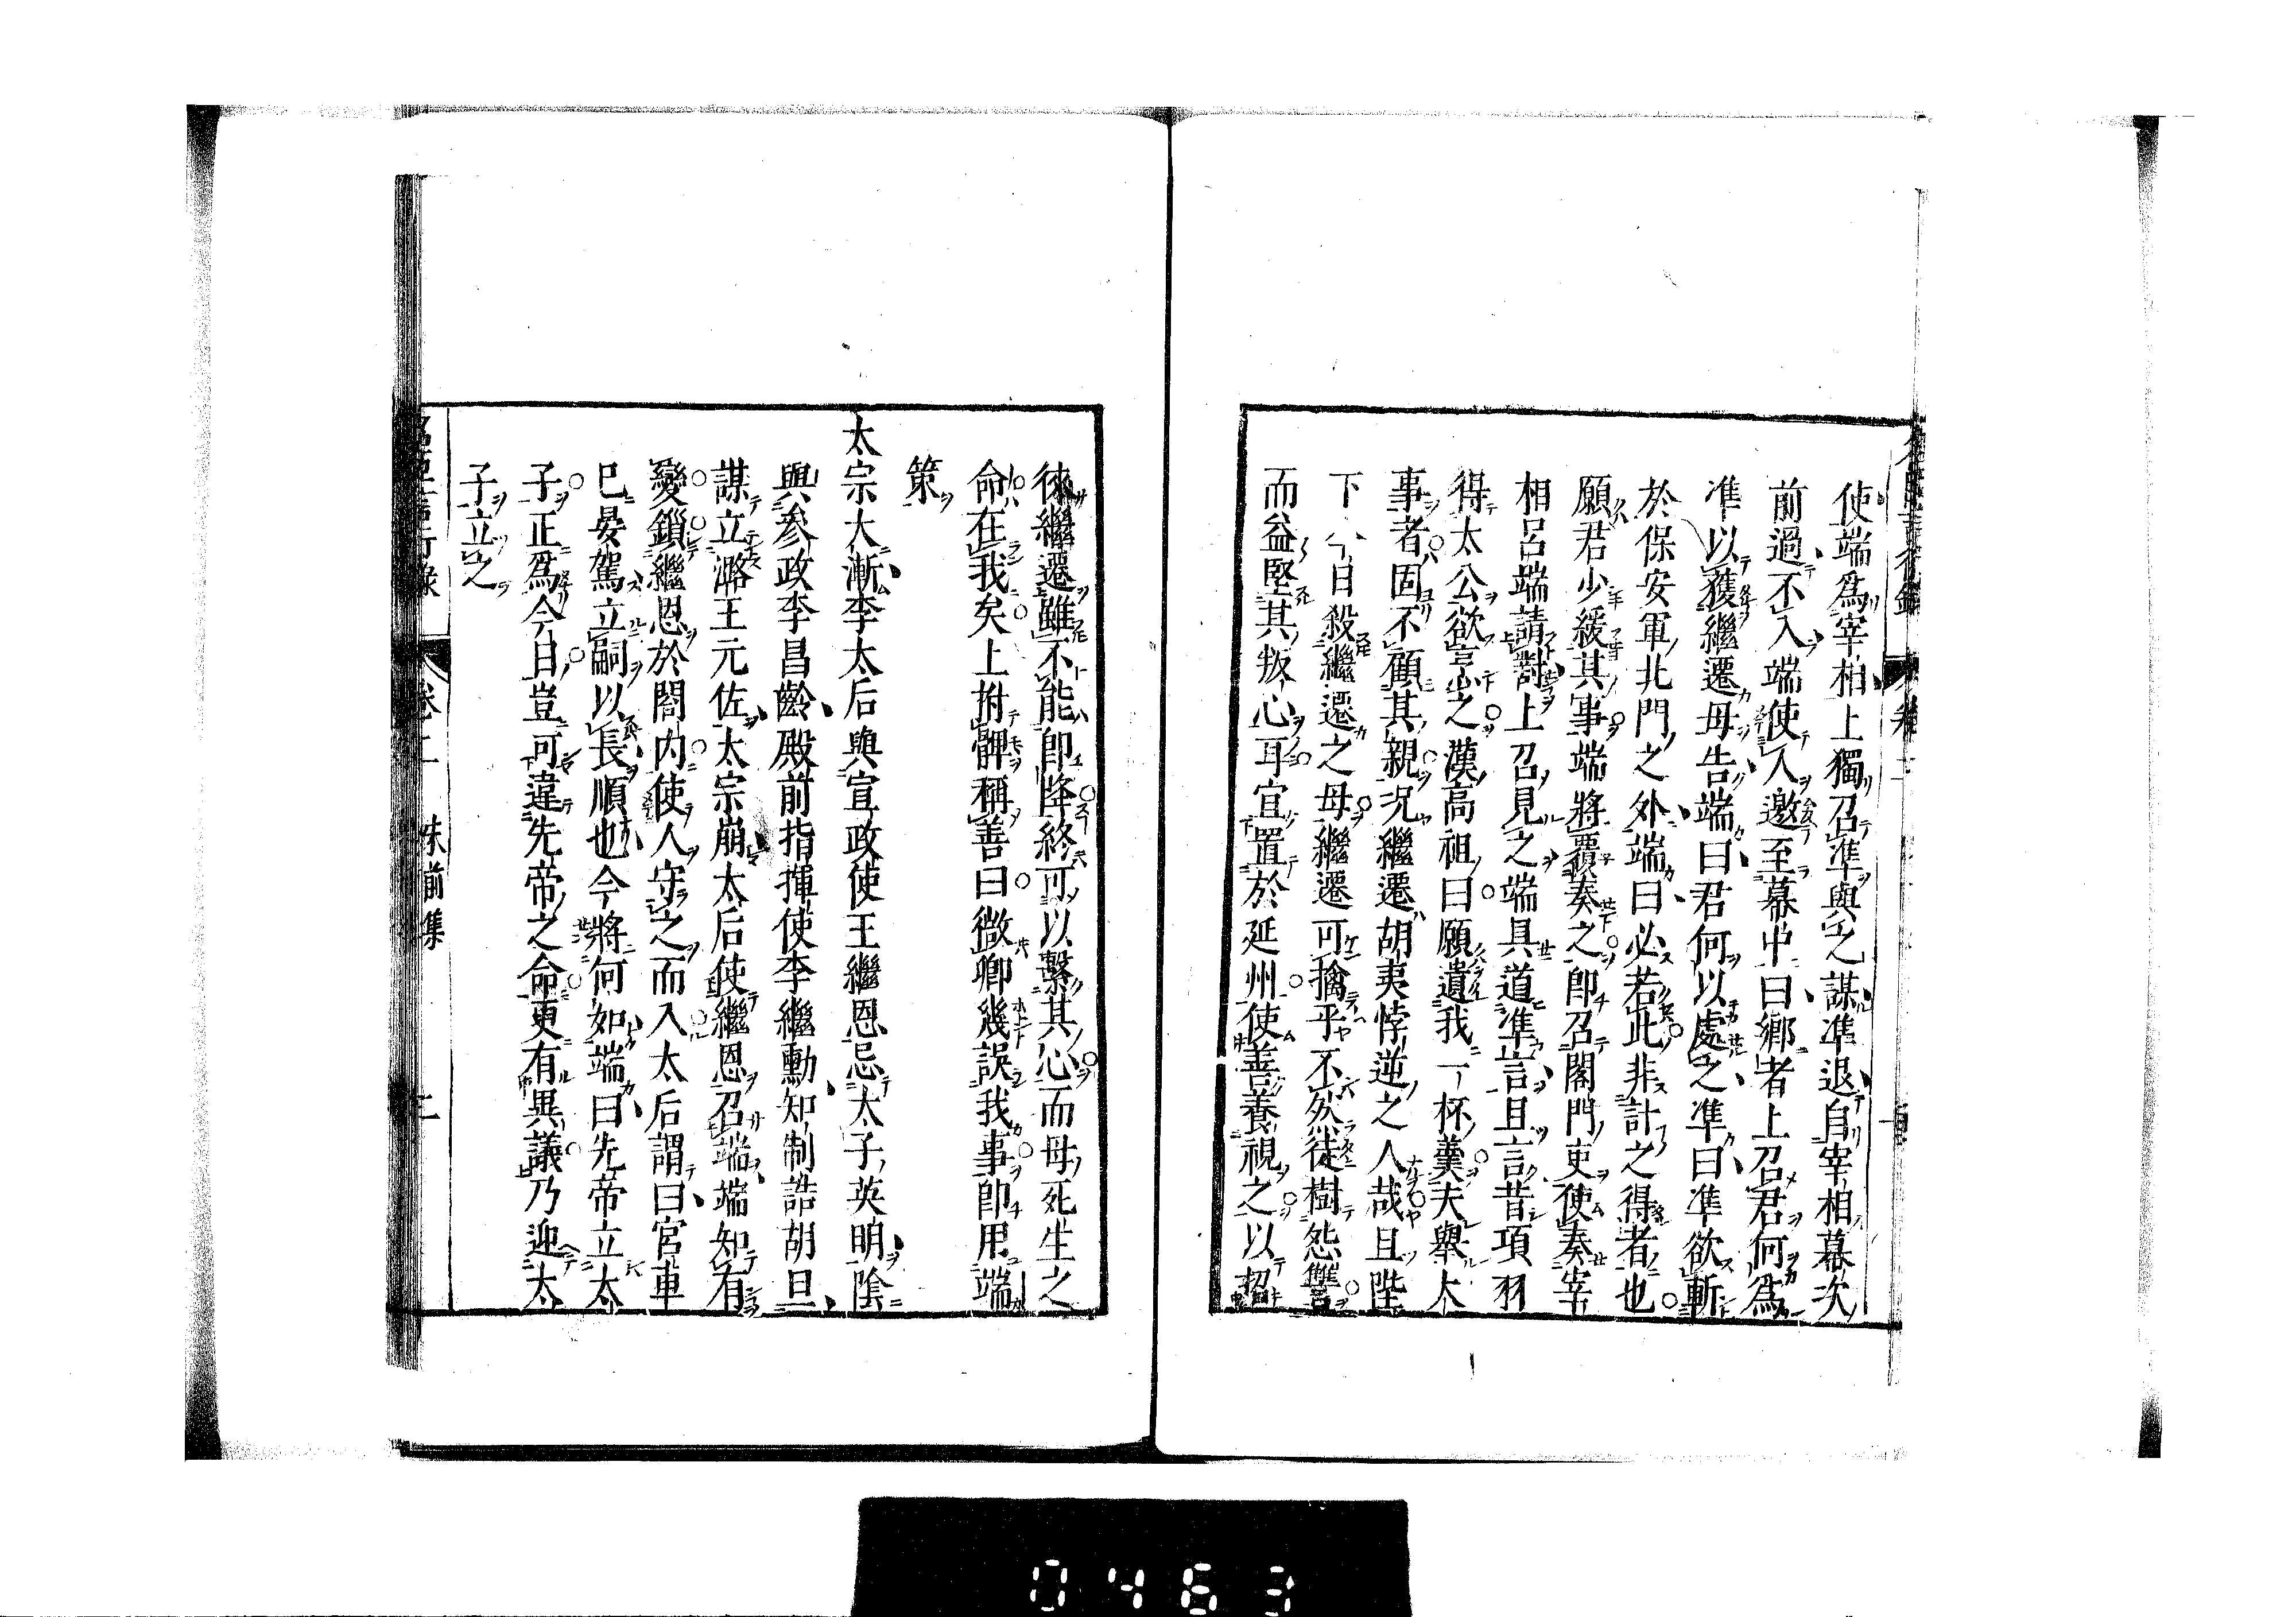 使端爲宰相上獨召準與之謀準退自宰相幕次
前過不入端使人邀至幕中曰鄕者上召君何爲
準以獲繼遷母告端曰君何以處之準曰準欲斬
於保安軍北門之外端曰必若此非計之得者也
願君少緩其事端將覆奏之卽召閤門吏使奏宰
相呂端請對上召見之端具道準言且言昔項羽
得太公欲烹之漢高祖曰願遺我一杯羹夫舉大
事者固不顧其親况繼遷胡夷悖逆之人哉且陛
下今日殺繼遷之母繼遷可擒乎不然徒樹怨讐
而益堅其叛心耳宜置於延州使善養視之以招
徠繼遷雖不能卽降終可以繫其心而母死生之
命在我矣上拊髀稱善曰微卿幾誤我事卽用端
策
太宗大漸李太后與宣政使王繼恩忌太子英明陰
與參政李昌齡殿前指揮使李繼勳知制誥胡旦
謀立潞王元佐太宗崩太后使繼恩召端端知有
變鎖繼恩於閤內使人守之而入太后謂曰宮車
已晏駕立嗣以長順也今將何如端曰先帝立太
子正爲今日豈可違先帝之命更有異議乃迎太
子立之
名臣言行錄
卷二
朱前集
二
0463